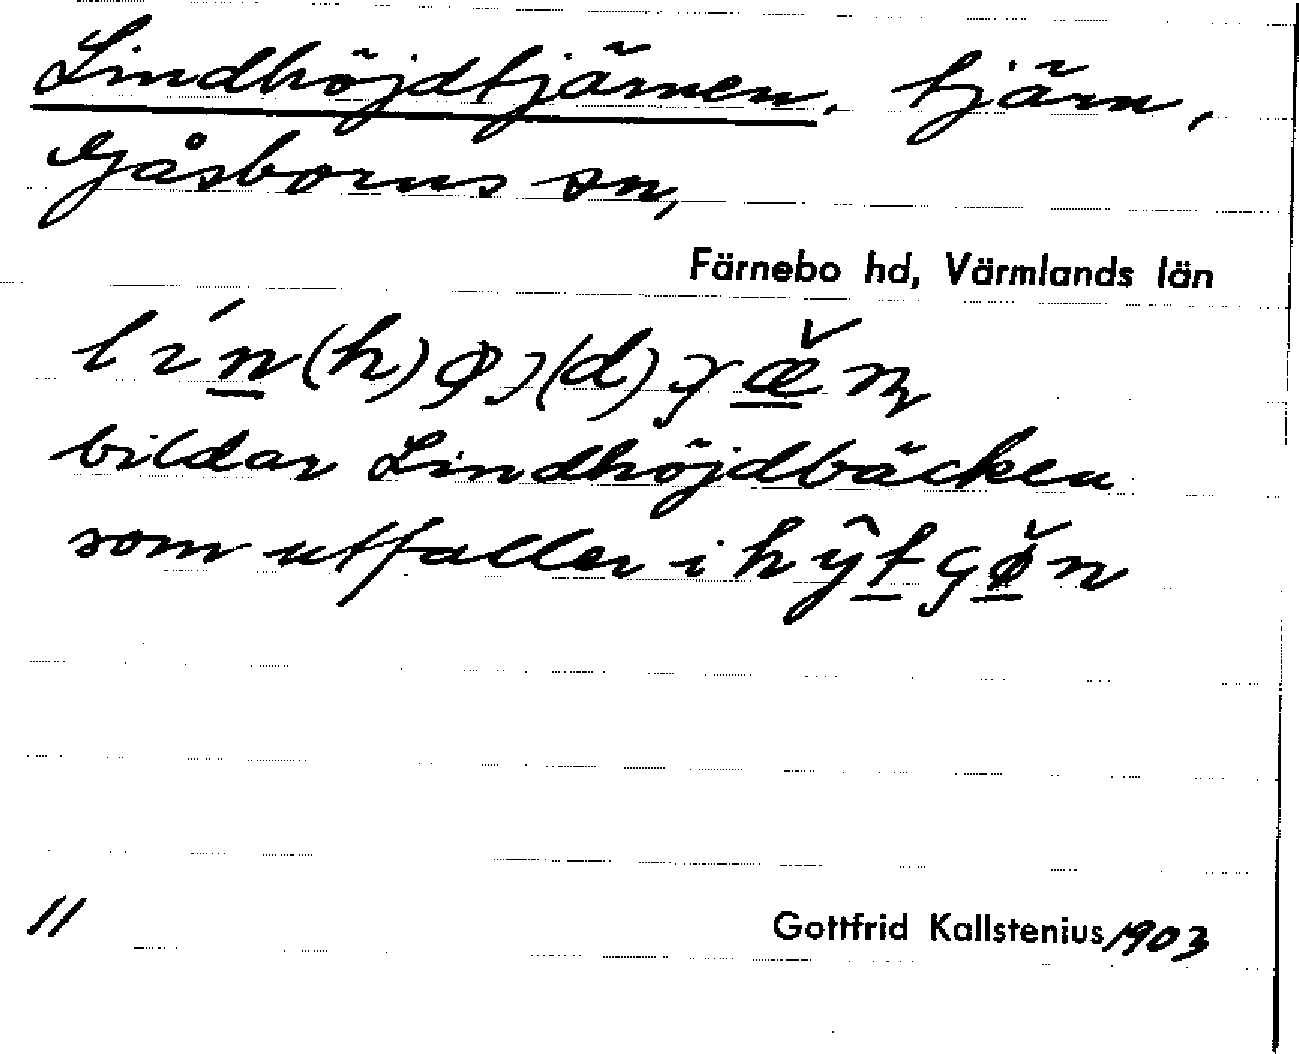 Lindhöjdtjärnen, tjärn,
Gåsborns sn,
Färnebo hd, Värmlands län
bildar Lindhöjdbäcken
som utfaller i
11
Gottfrid Kallstenius 1903